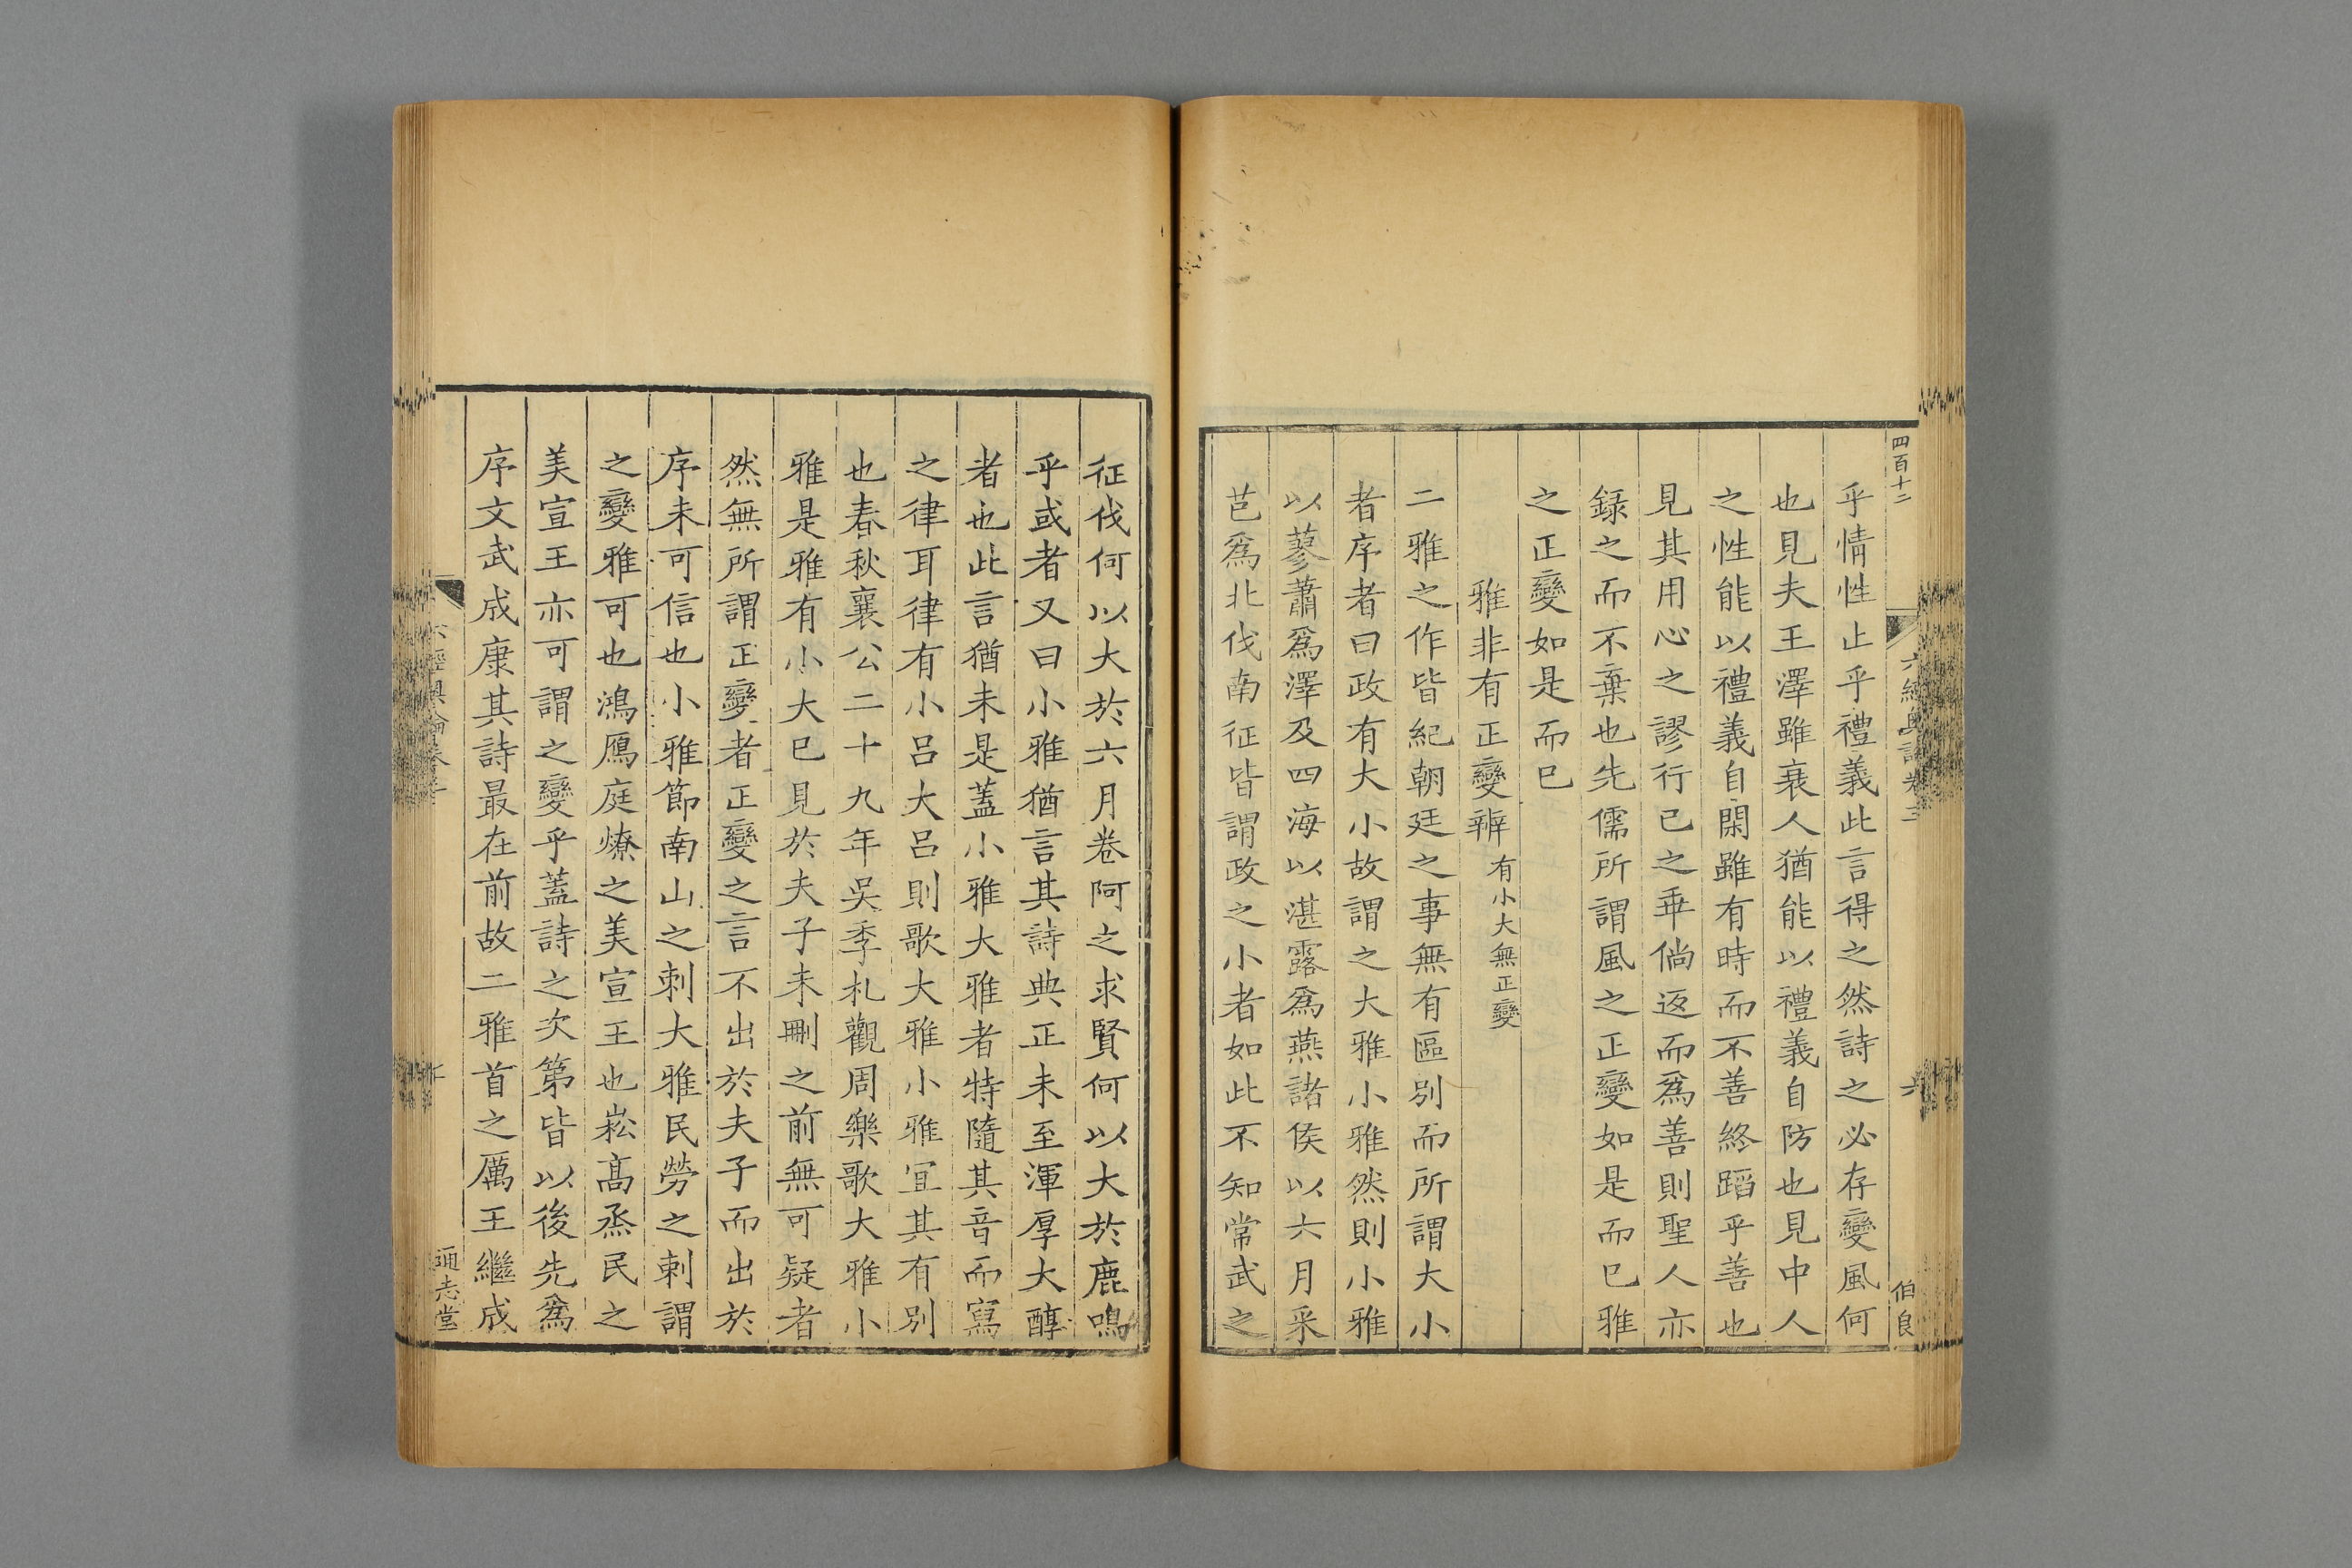 四百十二
六經奧論卷三
六
伯良
乎情性止乎禮義此言得之然詩之必存變風何
也見夫王澤雖衰人猶能以禮義自防也見中人
之性能以禮義自閑雖有時而不善終蹈乎善也
見其用心之謬行已之乖倘返而爲善則聖人亦
録之而不棄也先儒所謂風之正變如是而已雅
之正變如是而已
雅非有正變辨有小大無正變
二雅之作皆紀朝廷之事無有區别而所謂大小
者序者曰政有大小故謂之大雅小雅然則小雅
以蓼蕭爲澤及四海以湛露爲燕諸侯以六月采
芑爲北伐南征皆謂政之小者如此不知常武之
征伐何以大於六月卷阿之求賢何以大於鹿鳴
乎或者又曰小雅猶言其詩典正未至渾厚大醇
者也此言猶未是蓋小雅大雅者特隨其音而寫
之律耳律有小吕大吕則歌大雅小雅宜其有别
也春秋襄公二十九年吳季札觀周樂歌大雅小
雅是雅有小大已見於夫子未刪之前無可疑者
然無所謂正變者正變之言不出於夫子而出於
序未可信也小雅節南山之刺大雅民勞之刺謂
之變雅可也鴻鴈庭燎之美宣王也崧髙烝民之
美宣王亦可謂之變乎蓋詩之次第皆以後先爲
序文武成康其詩最在前故二雅首之厲王繼成
通志堂